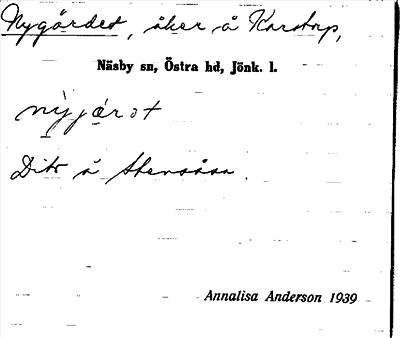 Nygärdet, åker å Karstorp,
Näsby sn, Östra hd, Jönk. l.
nỳjạ́rɔt
Dito å Stensåsa.
Annalisa Anderson 1939